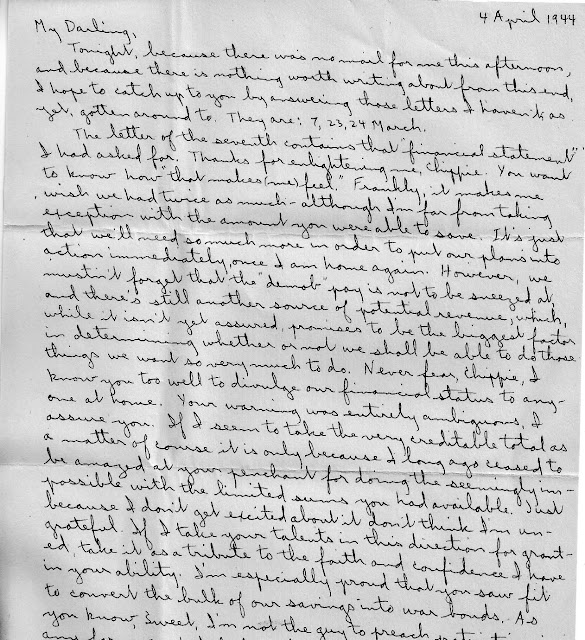 4 April 1944
My Darling,
Tonight, because there was no mail for me this afternoon,
and because there is nothing worth writing about from this end,
I hope to catch up to you by answering those letters I haven't, as
yet, gotten around to. They are: 7, 23, 24 March.
The letter of the seventh contains that "financial statement"
I had asked for. Thanks for enlightening me, Chippie. You want
to know how that makes (me) feel." Frankly, it makes me
wish we had twice as much - although I'm far from taking
exception with the amount you were able to save. It's just
that we'll need so much more in order to put our plans into
action immediately, once I am home again. However, we
mustn't forget that the "demob" pay is not to be sneezed at,
and there's still another source of potential revenue, which,
while it isn't yet assured, promises to be the biggest factor
in determining whether or not we shall be able to do those
things we want so very much to do. Never fear, Chippie, I
know you too well to divulge our financial status to any-
one at home. Your warning was entirely ambiguous, I
assure you. If I seem to take the very creditable total as
a matter of course it is only because I long ago ceased to
be amazed at your penchant for doing the seemingly im-
possible with the limited sums you had available. Just
because I don't get excited about it don't think I'm un-
grateful. If I take your talents in this direction for grant-
ed, take it as a tribute to the faith and confidence I have
in your ability. I'm especially proud that you saw fit
to convert the bulk of our savings into war bonds. As
you know, Sweet, I'm not the guy to preach